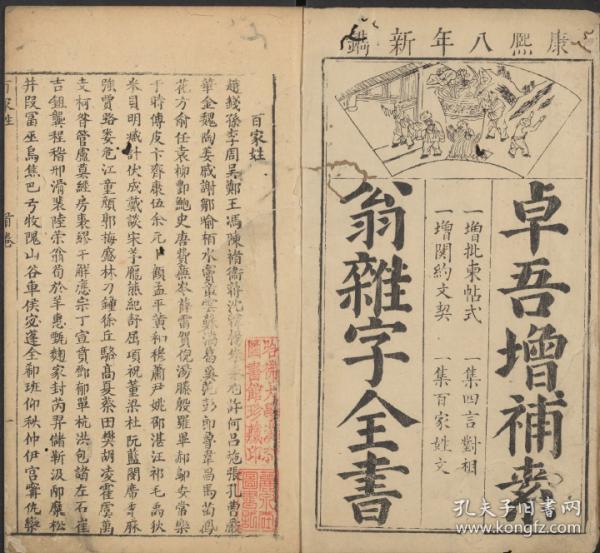 康熙八年新鐫
卓吾增補素
一增批柬帖式 一集四言對相
一增関約文契 一集百家姓文
翁雜字全書
百家姓
趙錢孫李周吳鄭王馮陳褚衛蔣沈韓楊朱秦尤許何呂施張孔曹嚴
華金魏陶姜戚謝鄒喻栢水竇章雲蘇潘葛奚范彭郎魯韋昌馬苗鳳
花方俞任袁柳酆鮑史唐費廉岑薛雷賀倪湯滕殷羅畢郝鄔安常樂
于時傅皮卞齊康伍余元卜顧孟平黃和穆蕭尹姚邵湛江祁毛禹狄
米貝明臧計伏成戴談宋茅龐熊紀舒屈項祝董梁杜阮藍閔席季麻
強賈路婁危江童顏郭梅盛林刁鍾徐丘駱高夏蔡田樊胡凌霍虞萬
支柯昝管盧莫經房裘繆干解應宗丁宣賁鄧郁單杭洪包諸左石崔
吉鈕龔程嵇邢滑裴陸榮翁荀於羊惠甄麴家封芮羿儲靳汲邴糜松
井段富巫烏焦巴弓牧隗山谷車侯宓蓬全郗班仰秋仲伊宮寧仇欒
百家姓 首卷 一
哈佛大學漢和圖書館珍藏印
孔夫子旧书网